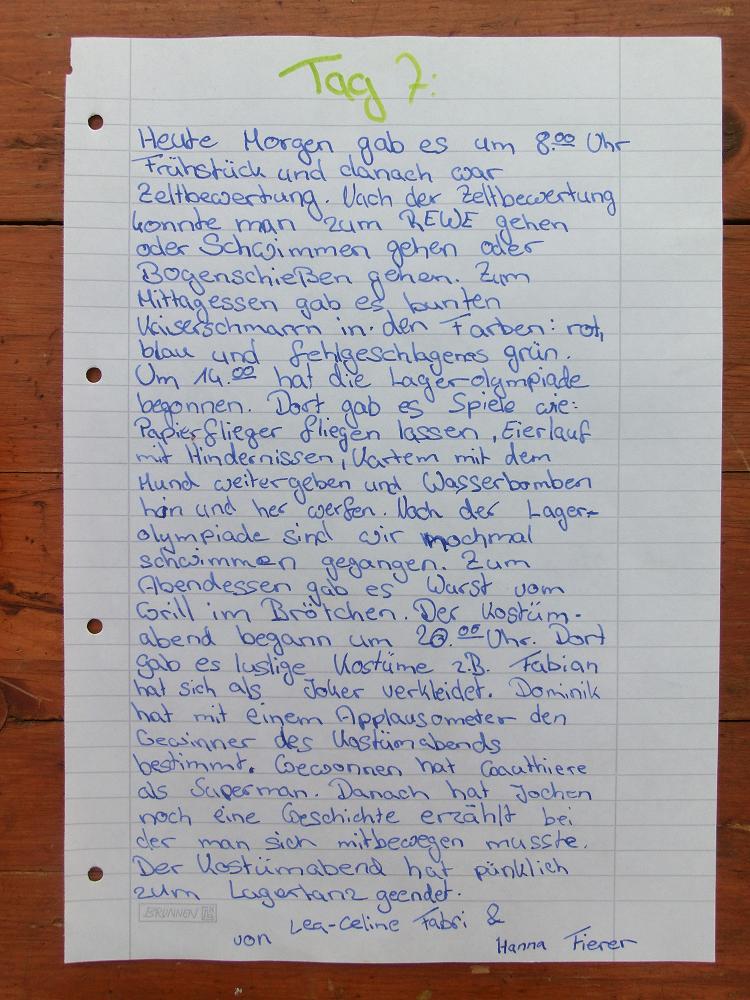 Tag 7:
Heute Morgen gab es um 8.00 Uhr
Frühstück und danach war
Zeltbewertung. Nach der Zeltbewertung
konnte man zum REWE gehen
oder Schwimmen gehen oder
Bogenschießen gehen. Zum
Mittagessen gab es bunten
Kaiserschmarrn in den Farben: rot,
blau und fehlgeschlagenes grün.
Um 14.00 hat die Lager-olympiade
begonnen. Dort gab es Spiele wie:
Papierflieger fliegen lassen, Eierlauf
mit Hindernissen, Kartem mit dem
Mund weitergeben und Wasserbomben
hin und her werfen. Nach der Lager-
olympiade sind wir nochmal
schwimmen gegangen. Zum
Abendessen gab es Wurst vom
Grill im Brötchen. Der Kostüm-
abend begann um 20.00 Uhr. Dort
gab es lustige Kostüme z.B. Fabian
hat sich als Joker verkleidet. Dominik
hat mit einem Applausometer den
Gewinner des Kostümabends
bestimmt. Gewonnen hat Gauthiere
als Superman. Danach hat Jochen
noch eine Geschichte erzählt bei
der man sich mitbewegen musste.
Der Kostümabend hat pünklich
zum Lagertanz geendet.
BRUNNEN
von Lea-Celine Fabri &
Hanna Fierer